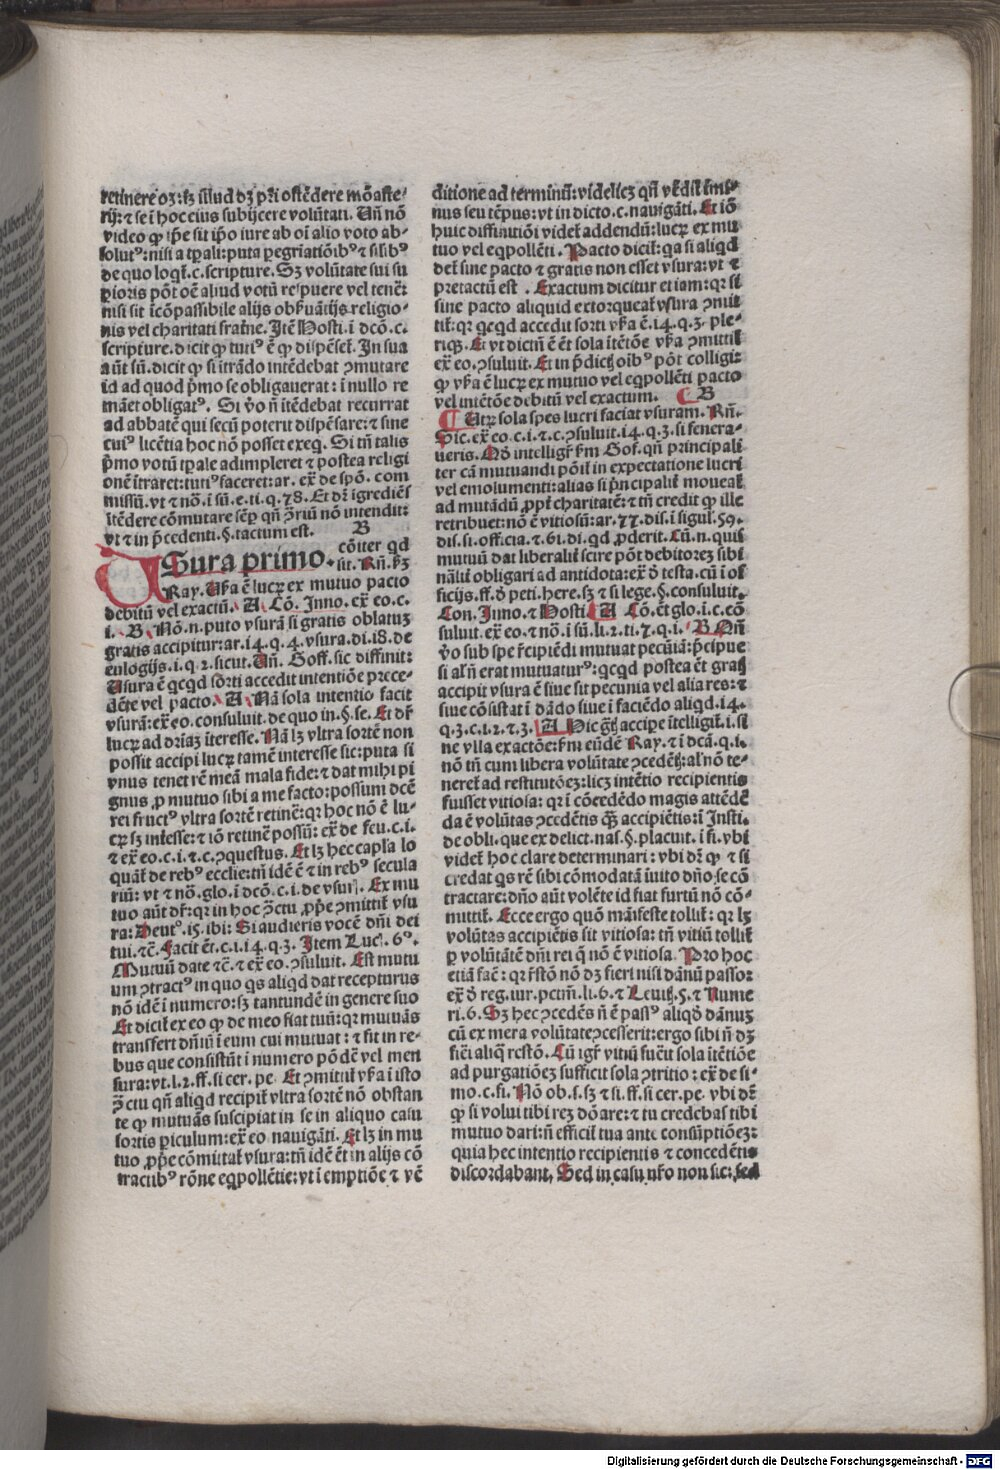 retinere oꝫ: sꝫ illud dꝫ p̄ri ostēdere mōaste⸗
rij: ⁊ se ī hoc eius subijcere volūtati. Un̄ nō
video ꝙ ip̄e sit ip̄o iure ab oī alio voto ab⸗
solutꝰ: nisi a tp̄ali: puta pegriatiōibꝰ ⁊ silibꝰ
de quo loqt̄. c. scripture. Sꝫ volūtate sui su
ꝑioris pōt oē aliud votū respuere vel tenē:
nisi sit īcōpassibile alijs obẜuātijs religio⸗
nis vel charitati frat̄ne. Itē Hosti. ī dcō. c.
scripture. dicit ꝙ tutiꝰ ē ꝙ dispēset̄. In sua
aūt sū. dicit ꝙ si ītrādo intēdebat ꝯmutare
id ad quod pͥmo se obligauerat: ī nullo re
māet obligatꝰ. Si v̄o n̄ itēdebat recurrat
ad abbatē qui secū poterit dispēsare: ⁊ sine
cuiꝰ licētia hoc nō posset exeq. Si tn̄ talis
pͥmo votū tp̄ale adimpleret ⁊ postea religi
onē ītraret: tutiꝰ faceret: ar. ex̄ de spō. com
missū. vt ⁊ nō. ī sū. e. ti. q. 78. Et dr̄ īgrediēs
ītēdere cōmutare sēꝑ qn̄ ꝯ̄riū nō intendit:
vt ⁊ in p̄cedenti. §. tactum est. B
USura primo. cōiter qd
sit. Rn̄. ẜꝫ
Ray. Uẜa ē lucꝝ ex mutuo pacto
debitū vel exactū. A Cō. Inno. ex̄ eo. c.
i. B Nō. n. puto vsurā si gratis oblatuꝫ
gratis accipitur: ar. 14. q. 4. vsura. di. 18. de
eulogijs. 1. q. 2. sicut. Un̄. Goff. sic diffinit:
Usura ē qcqd sorti accedit intentiōe prece⸗
dēte vel pacto. A Nā sola intentio facit
vsurā: ex̄ eo. consuluit. de quo in. §. se. Et dr̄
lucꝝ ad dr̄iaꝫ īteresse. Nā lꝫ vltra sortē non
possit accipi lucꝝ tamē interesse sic: puta si
vnus tenet rē meā mala fide: ⁊ dat mihi pi
gnus ꝓ mutuo sibi a me facto: possum dcē
rei fructꝰ vltra sortē retinē: qꝛ hoc nō ē lu⸗
cꝝ sꝫ intesse: ⁊ iō retinē possū: ex̄ de feu. c. i.
⁊ ex̄ eo. c. i. ⁊ c. ꝯquestus. Et lꝫ hec capl̄a lo
quāt̄ de rebꝰ eccl̄ie: tn̄ idē ē ⁊ in rebꝰ secula
riū: vt ⁊ nō. glo. ī dcō. c. i. de vsur. Ex mu
tuo aūt dr̄: qꝛ in hoc ꝯ̄ctu ꝓp̄e ꝯmittit̄ vsu
ra: Deutꝰ. 15. ibi: Si audieris vocē dn̄i dei
tui. ⁊c̄. Facit ēt. c. i. 14. q. 3. Item Luc. 6°.
Mutuū date ⁊c̄. ⁊ ex̄ eo. ꝯsuluit. Est mutu
um ꝯtractꝰ in quo qs aliqd dat recepturus
nō idē ī numero: sꝫ tantundē in genere suo
Et dicit̄ ex eo ꝙ de meo fiat tuū: qꝛ mutuās
transfert dn̄iū ī eum cui mutuat: ⁊ fit in re⸗
bus que consistūt ī numero pōdē vel men
sura: vt. l. 2. ff. si cer. pe. Et ꝯmitit̄ vẜa ī isto
ꝯ̄ctu qn̄ aliqd recipit̄ vltra sortē nō obstan
te ꝙ mutuās suscipiat in se in aliquo casu
sortis ꝑiculum: ex̄ eo nauigāti. Et lꝫ in mu
tuo ꝓp̄e cōmitat̄ vsura: tn̄ idē ēt in alijs cō
tractibꝰ rōne eqpollētie: vt ī emptiōe ⁊ vē
ditione ad terminū: videlicꝫ qn̄ vēdit̄ īmi⸗
nus seu tēpus: vt in dicto. c. nauigāti. Et iō
huic diffinitiōi videt̄ addendū: lucꝝ ex mu
tuo vel eqpollēti. Pacto dicit̄: qa si aliqd
det̄ sine pacto ⁊ gratis non esset vsura: vt ⁊
pretactū est. Exactum dicitur etiam: qꝛ si
sine pacto aliquid extorqueat̄ vsura ꝯmit
tit̄: qꝛ qcqd accedit sorti vẜa ē. 14. q. 3. ple⸗
riqꝫ. Et vt dictū ē ēt sola itētiōe vẜa ꝯmittit̄
ex̄ eo. ꝯsuluit. Et in p̄dictꝭ oībꝰ pōt colligi:
ꝙ vẜa ē lucꝝ ex mutuo vel eqpollēti pacto
vel intētōe debitū vel exactum. B
Utꝝ sola spes lucri faciat vsuram. Rn̄.
Sic. ex̄ eo. c. i. ⁊ c. ꝯsuluit. 14. q. 3. si fenera⸗
ueris. Qd̄ intelligit̄ ẜm Gof. qn̄ principali
ter cā mutuandi pōit̄ in expectatione lucri
vel emolumenti: alias si pͥncipalit̄ moueat̄
ad mutādū ꝓpt̄ charitatē: ⁊ tn̄ credit ꝙ ille
retribuet: nō ē vitiosū: ar. 77. dis. ī sigul. 59.
dis. si. off. cia. ⁊. 61. di. qd ꝓderit. Cū. n. quis
mutuū dat liberalit̄ scire pōt debitoreꝫ sibi
nālit̄ obligari ad antidota: ex̄ d̄ testa. cū ī of
ficijs. ff. d̄ peti. here. sꝫ ⁊ si lege. §. consuluit.
Con. Inno. ⁊ Hosti. A Cō. ēt glo. i. c. cō
suluit. ex̄ eo ⁊ nō. i sū. li. 2. ti. 7. q. i. B Qn̄
v̄o sub spe r̄cipiēdi mutuat pecūiā: p̄cipue
si al̓n̄ erat mutuaturꝰ: qcqd postea ēt gratꝭ
accipit vsura ē siue sit pecunia vel alia res: ⁊
siue cōsistat ī dādo siue ī faciēdo aliqd. 14.
q. 3. c. 1. 2. ⁊. 3. A Hic gͣtꝭ accipe ītelligit̄. i. si
ne vlla exactōe: ẜm eūdē Ray. ⁊ ī dcā. q. i.
nō tn̄ cum libera volūtate ꝯcedētꝭ: al̓ nō te⸗
neret̄ ad restitutōeꝫ: licꝫ intētio recipientis
fuisset vitiosa: qꝛ ī cōcedēdo magis attēdē
da ē volūtas ꝯcedētis qꝫ accipiētis: ī Insti.
de obli. que ex delict. nas. §. placuit. ī fi. vbi
videt̄ hoc clare determinari: vbi dr̄ ꝙ ⁊ si
credat qs rē sibi cōmodatā īuito dn̄o se cō
tractare: dn̄o aūt volēte id fiat furtū nō cō⸗
mittit̄. Ecce ergo quō māifeste tollit̄: qꝛ lꝫ
volūtas accipiētis sit vitiosa: tn̄ vitiū tollit̄
ꝑ volūtatē dn̄i rei q̄ nō ē vitiosa. Pro hoc
etiā fac̄: qꝛ r̄stō nō dꝫ fieri nisi dānū passo:
ex̄ d̄ reg. iur. pctm̄. li. 6. ⁊ Leuitꝭ. 5. ⁊ Nume
ri. 6. Sꝫ hec ꝯcedēs n̄ ē passꝰ aliqd̄ dānuꝫ
cū ex mera volūtate ꝯcesserit: ergo sibi n̄ dꝫ
fieri aliq̄ restō. Cū igr̄ vitiū fuēit sola itētiōe
ad purgatiōeꝫ sufficit sola ꝯtritio: ex̄ de si⸗
mo. c. fi. Nō ob. s. sꝫ ⁊ si. ff. si cer. pe. vbi dr̄
ꝙ si volui tibi reꝫ dōare: ⁊ tu credebas tibi
mutuo dari: n̄ efficit̄ tua ante consūptiōeꝫ:
quia hec intentio recipientis ⁊ concedētis
discordabant. Sed in casu nr̄o non sic: sed
Digitalisierung gefördert durch die Deutsche Forschungsgemeinschaft - DFG